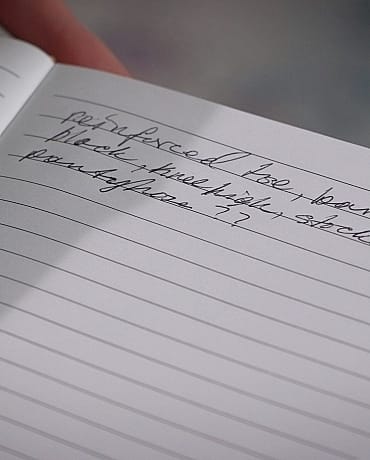 reinforced toe, bar
black, knee high, stock
pantyhose ??